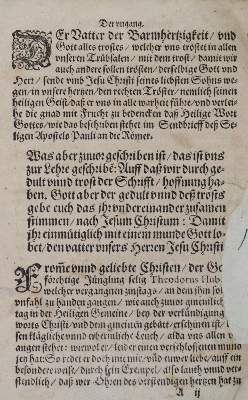 Der eingang.
DEr Vatter der Barmhertzigkeit / vnd
Gott alles trostes / welcher vns tröstet in allen
vnseren Trübsalen / mit dem trost / damit wir
auch andere sollen trösten / derselbige Gott vnd
Herr / sende vns Jesu Christi seines liebsten Sohns we-
gen / in vnsere hertzen / den rechten Tröster / nemlich seinen
heiligen Geist / daß er vns in alle warheit führe / vnd verlei-
he die gnad mit Frucht zu bedencken daß Heilige Wort
Gottes / wie das beschriben stehet im Sendbrieff deß Se-
ligen Apostels Pauli an die Römer.
Was aber zuuor geschriben ist / das ist vns
zur Lehre geschribē: Auff daß wir durch ge-
dult vnnd trost der Schrifft / hoffnung ha-
ben. Gott aber der gedult vnnd deß trosts
gebe euch das jhr vndereinander zusamen
stimmen / nach Jesum Christum: Damit
jhr einmütiglich mit einem munde Gott lo-
bet / den vatter vnsers Herzen Jesu Christi
FRomme vnnd geliebte Christen / der Ge
förchtige Jüngling selig Theodorus
welcher vorgangnen
zu handen gangen / wie auch zuuor
tag in der Heiligen Gemeine / bey der verkündigung
worts Christi / vnnd in gmeinem gebätt / erschinen ist /
sen klägliche vnnd Leich / alda vns allen v
augen stehet: wiewol er / leider einen verschlossenen mund
jez hat: So redet er doch mit mir / vnd euwer liebe / auff ein
besondere weiß / durch sein Exempel / also lauth vnnd ver-
stendlich / daß wer Ohren des verstendigen hertzen hat zu
A ij